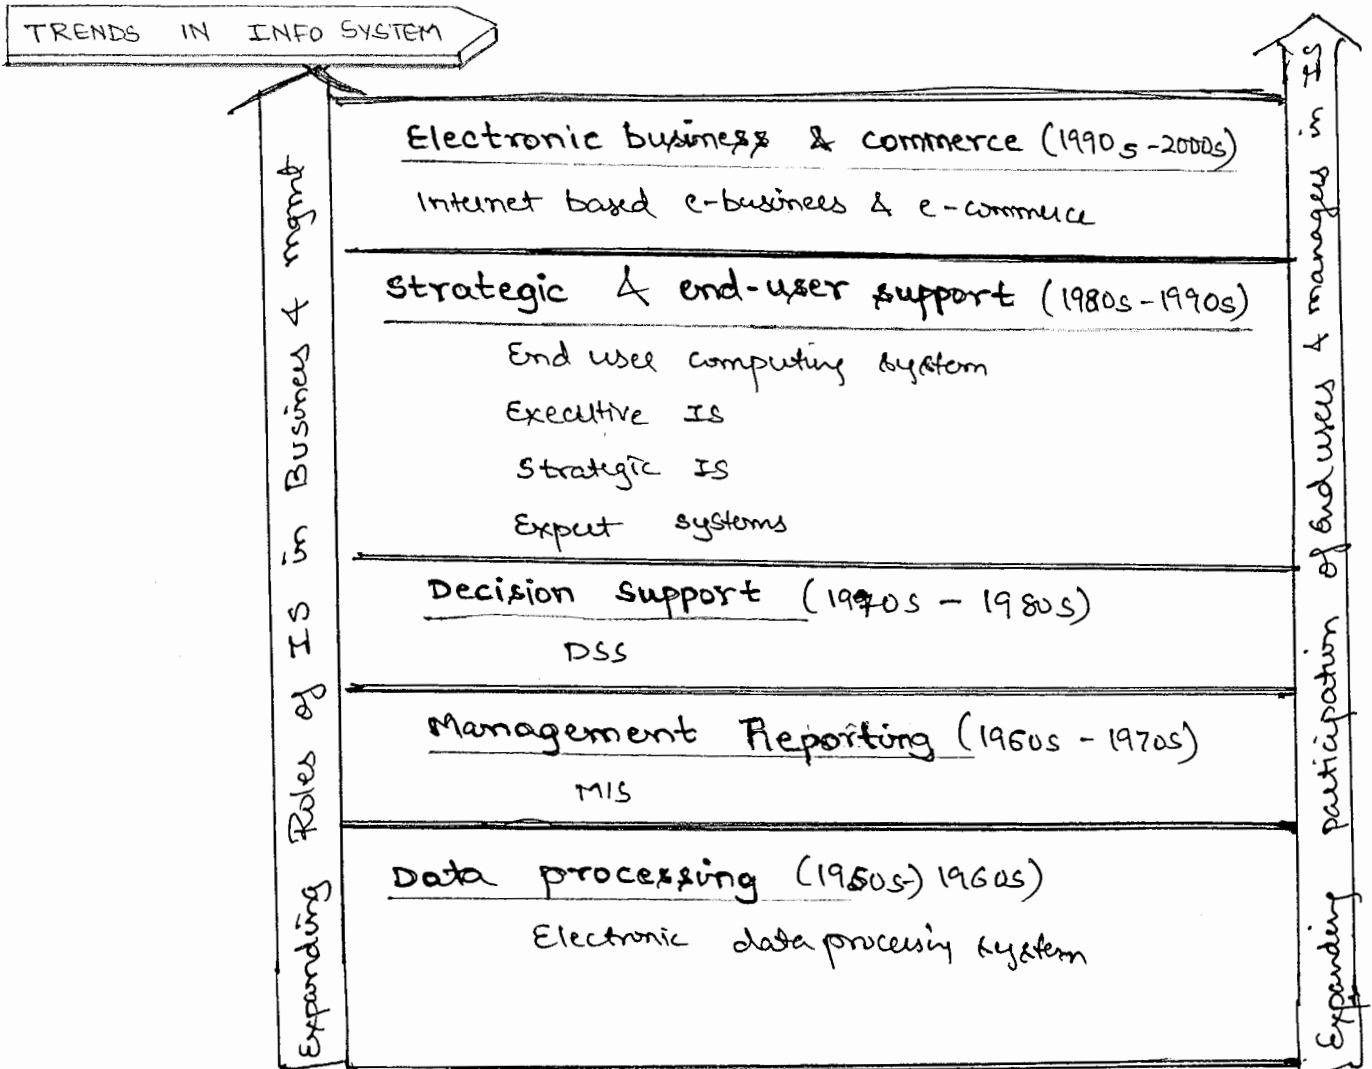 TRENDS IN INFO SYSTEM
Electronic business & commerce (1990s-2000s)
Internet based e-business & e-commerce
Strategic & end-user support (1980s-1990s)
End user computing system
Executive IS
Strategic IS
Expert systems
Decision support (1970s - 1980s)
DSS
Management Reporting (1960s - 1970s)
MIS
Data processing (1950s-) 1960s)
Electronic data processing system
Expanding Roles of IS in Business & mgmt
Expanding participation of end users & managers in IS